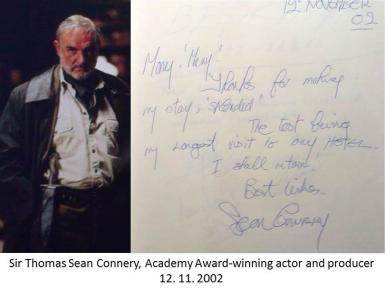 12th NOVEMBER
02
Many, "Many"
Thanks for making
my stay, "Splendid"
The test being
my longest visit to any HOTEL.
I shall return.
Best wishes.
Sean Connery
Sir Thomas Sean Connery, Academy Award-winning actor and producer
12. 11. 2002